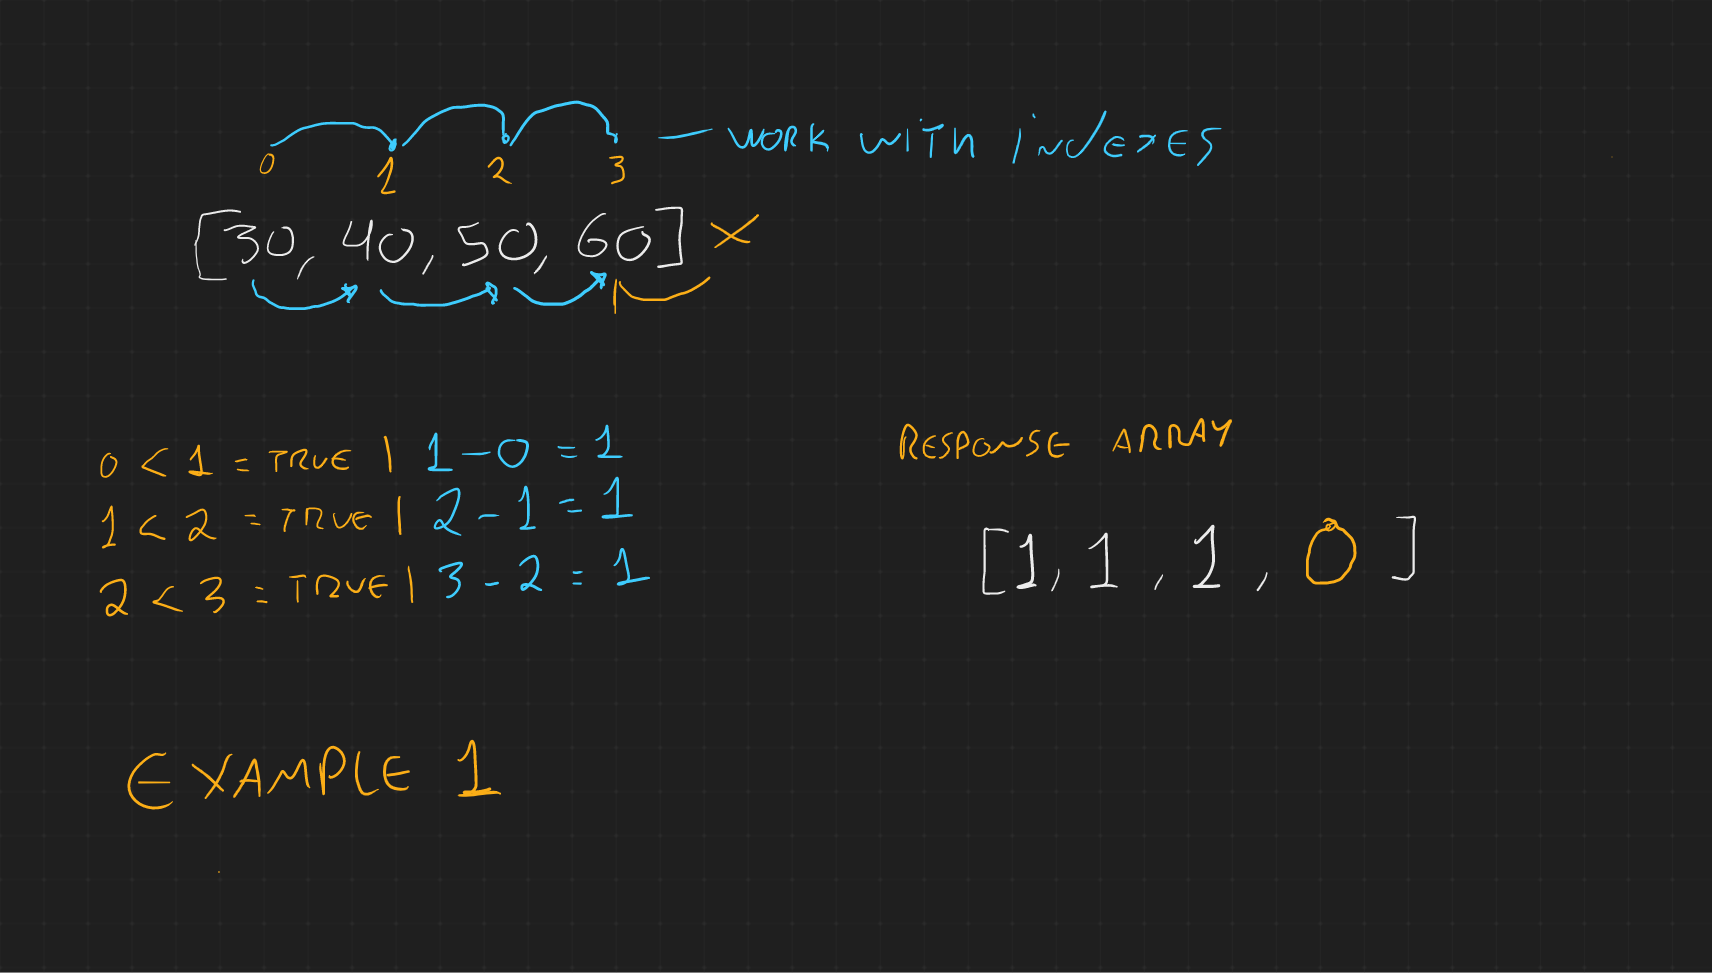 0 1 2 3 — WORK WITH INDEXES
[30, 40, 50, 60] X
0 < 1 = TRUE | 1 - 0 = 1
1 < 2 = TRUE | 2 - 1 = 1
2 < 3 = TRUE | 3 - 2 = 1
RESPONSE ARRAY
[1, 1, 1, 0]
EXAMPLE 1